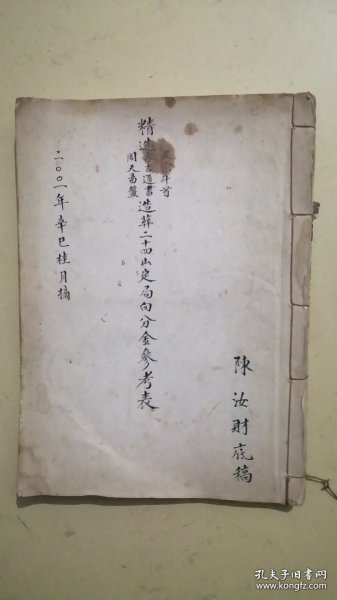 陳汝財底稿
精造
吉通書
周天局盤
造葬二十四山定局向分金參考表
二〇〇一年辛巳桂月摘
孔夫子旧书网
www.kongfz.com